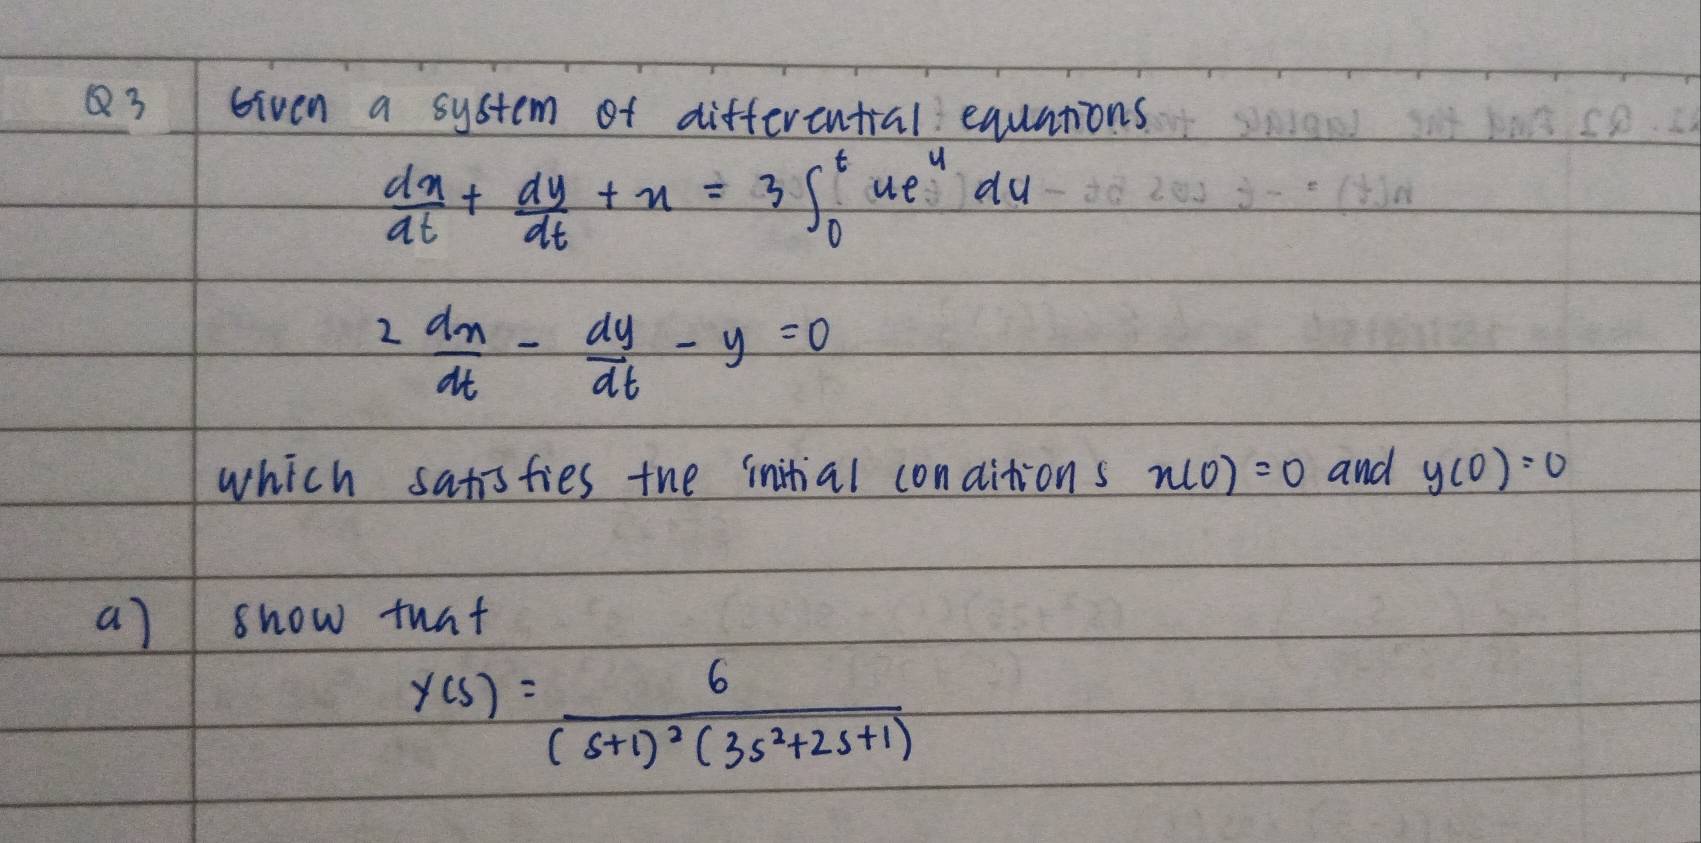 Q3 Given a system of differential equations
dx/dt + dy/dt + x = 3 ∫₀ᵗ ueᵘ du
2 dx/dt - dy/dt - y = 0
which satisfies the initial conditions x(0) = 0 and y(0) = 0
a) show that
Y(s) = 6/((s+1)²(3s²+2s+1))